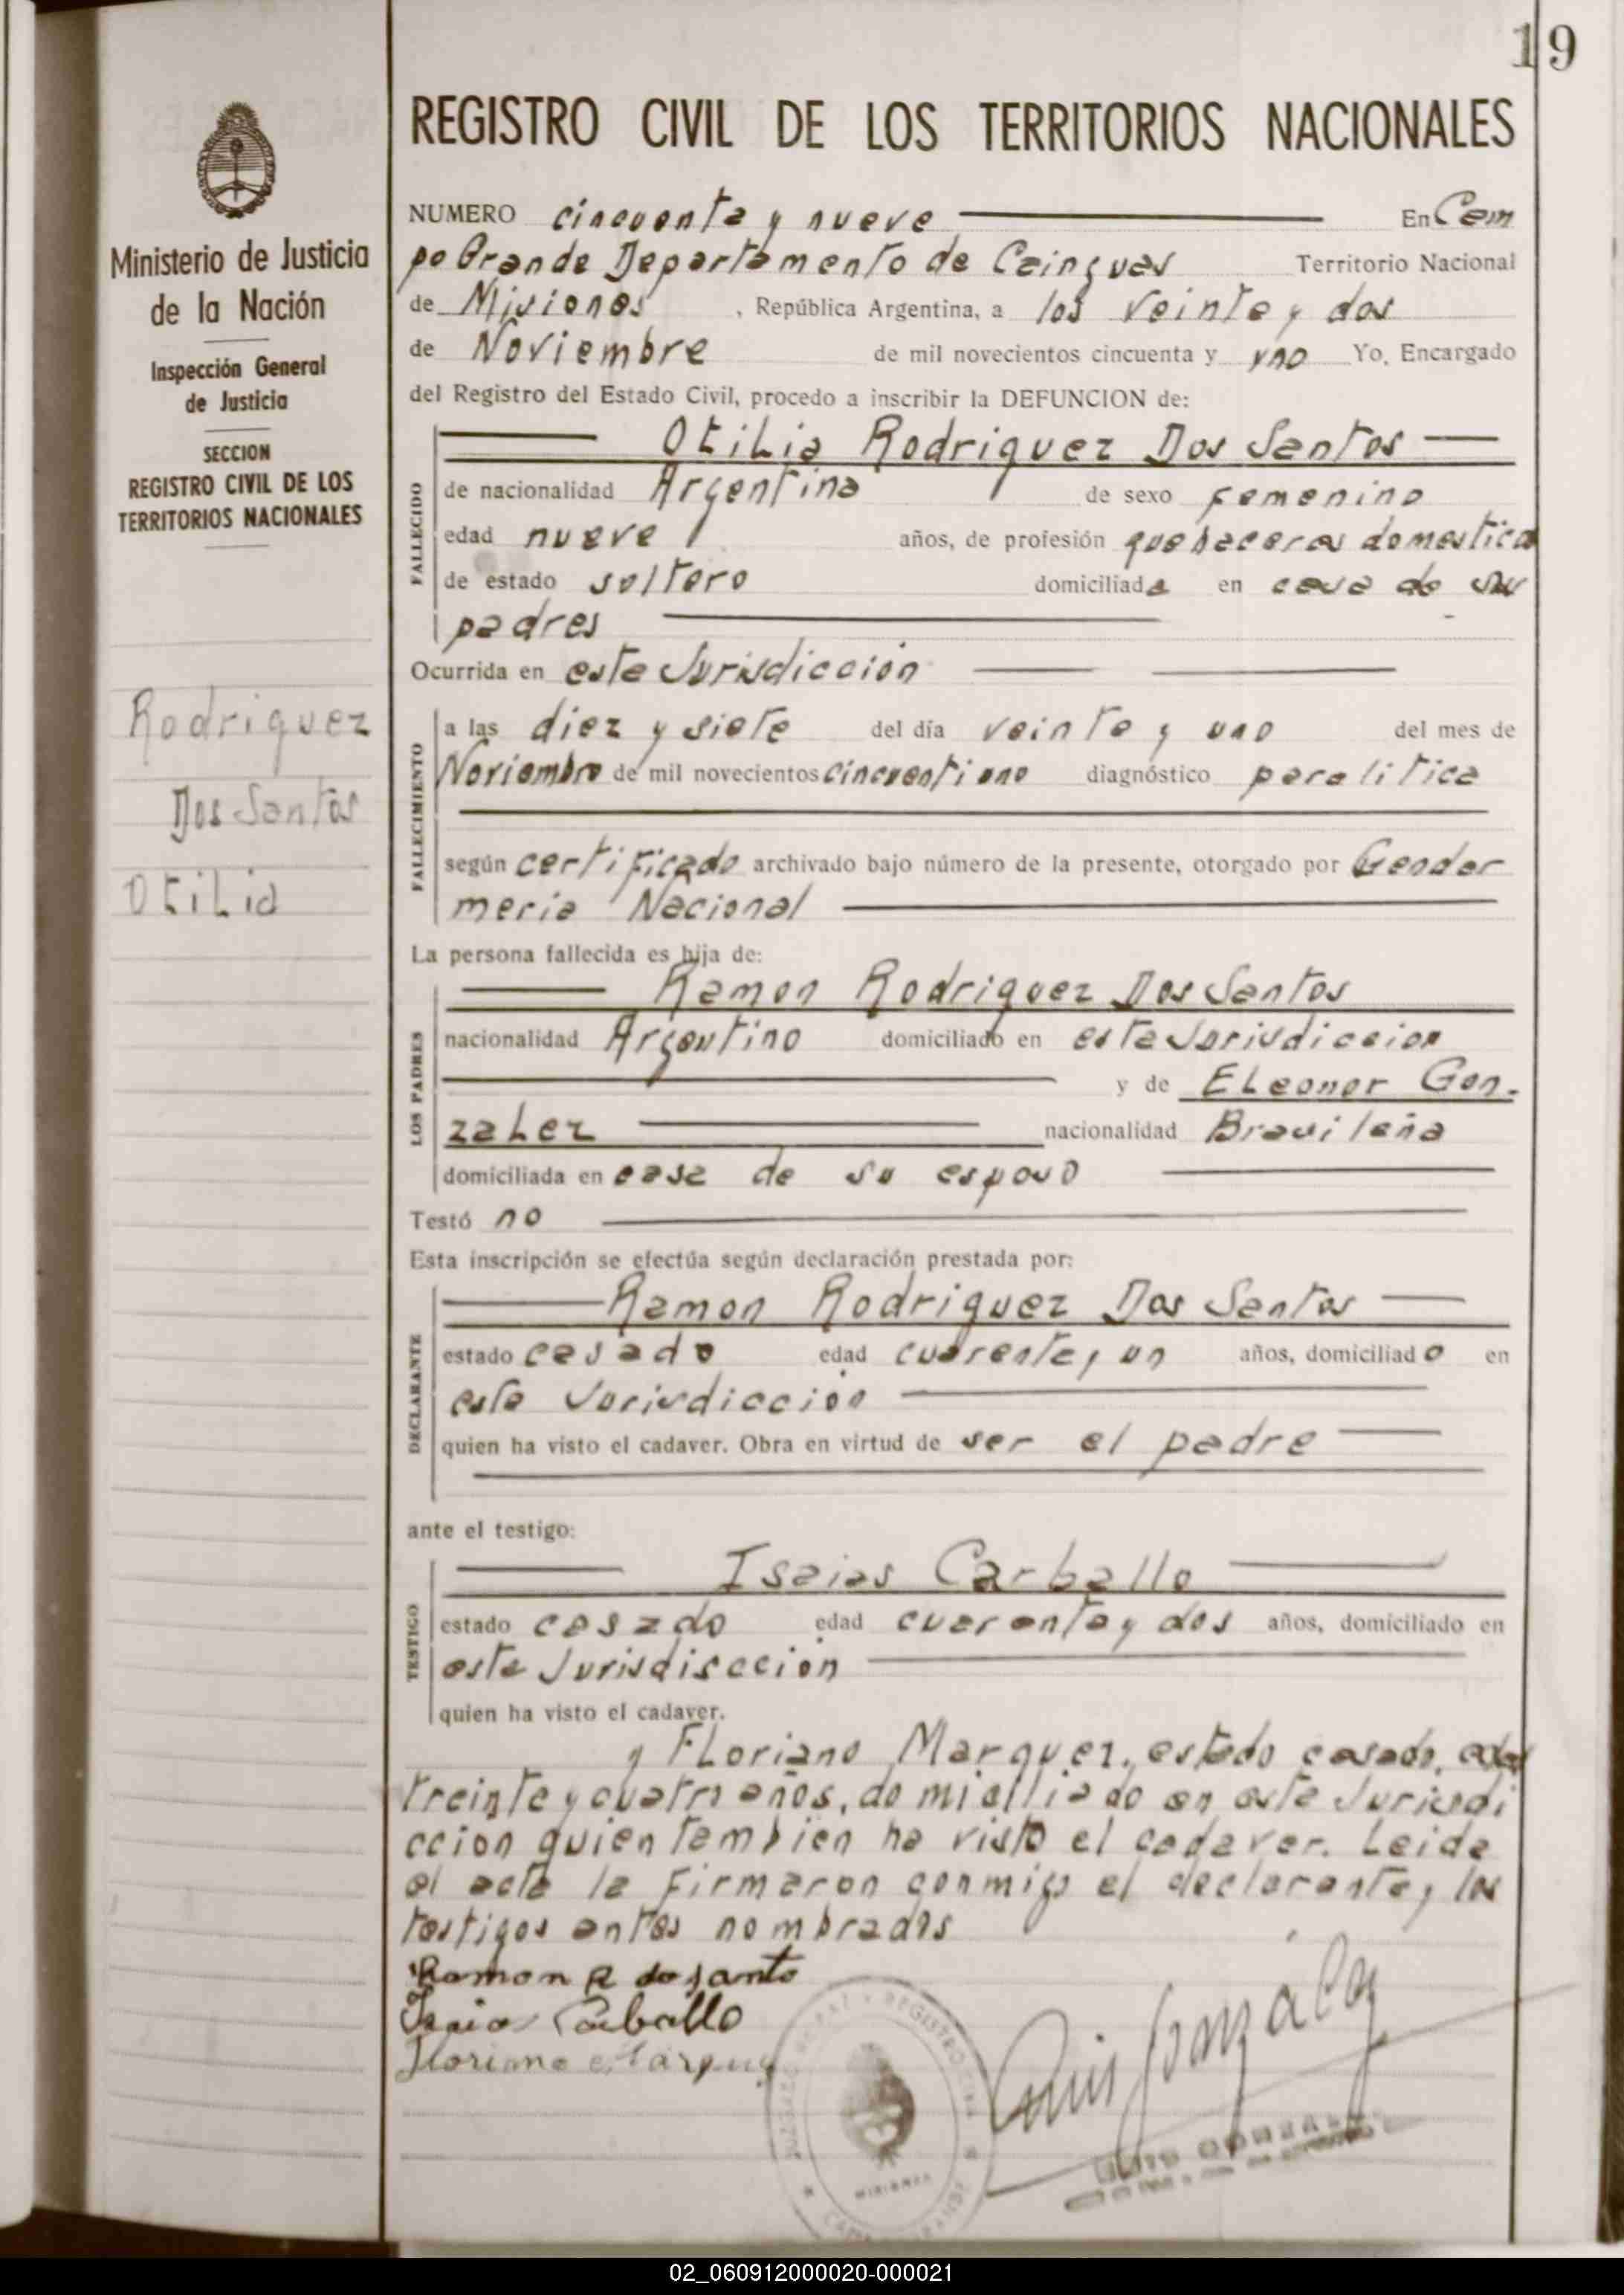 19
REGISTRO CIVIL DE LOS TERRITORIOS NACIONALES
Ministerio de Justicia
de la Nación
Inspección General
de Justicia
SECCION
REGISTRO CIVIL DE LOS
TERRITORIOS NACIONALES
Rodriguez
Dos Santos
Otilia
NUMERO cincuenta y nueve En Cam
po Grande Departamento de Cainguas Territorio Nacional
de Misiones, República Argentina, a los veinte y dos
de Noviembre de mil novecientos cincuenta y uno Yo, Encargado
del Registro del Estado Civil, procedo a inscribir la DEFUNCION de:
FALLECIDO
Otilia Rodriguez Dos Santos
de nacionalidad Argentina de sexo femenino
edad nueve años, de profesión quehaceres domestica
de estado soltero domiciliada en casa de sus
padres
Ocurrida en esta Jurisdicción
FALLECIMIENTO
a las diez y siete del día veinte y uno del mes de
Noviembre de mil novecientos cincuentiuno diagnóstico paralitica
según certificado archivado bajo número de la presente, otorgado por Gendar
meria Nacional
La persona fallecida es hija de:
LOS PADRES
Ramon Rodriguez Dos Santos
nacionalidad Argentino domiciliado en esta Jurisdiccion
y de Eleonor Gon-
zalez nacionalidad Brasileña
domiciliada en casa de su esposo
Testó no
Esta inscripción se efectúa según declaración prestada por:
DECLARANTE
Ramon Rodriguez Dos Santos
estado casado edad cuarenta y un años, domiciliado en
esta Jurisdicción
quien ha visto el cadaver. Obra en virtud de ser el padre
ante el testigo:
TESTIGO
Isaias Carballo
estado casado edad cuarenta y dos años, domiciliado en
esta Jurisdiscción
quien ha visto el cadaver.
y Floriano Marquez, estado casado, edad
treinta y cuatro años, domicilliado en esta Jurisdi
ccion quien tambien ha visto el cadaver. Leida
el acta la firmaron conmigo el declarante y los
testigos antes nombrados
Ramon R dosanto
Isaias Carballo
Floriano Marquez
Luis Gonzalez
REGISTRO CIVIL
MISIONES
LUIS GONZALEZ
02_060912000020-000021